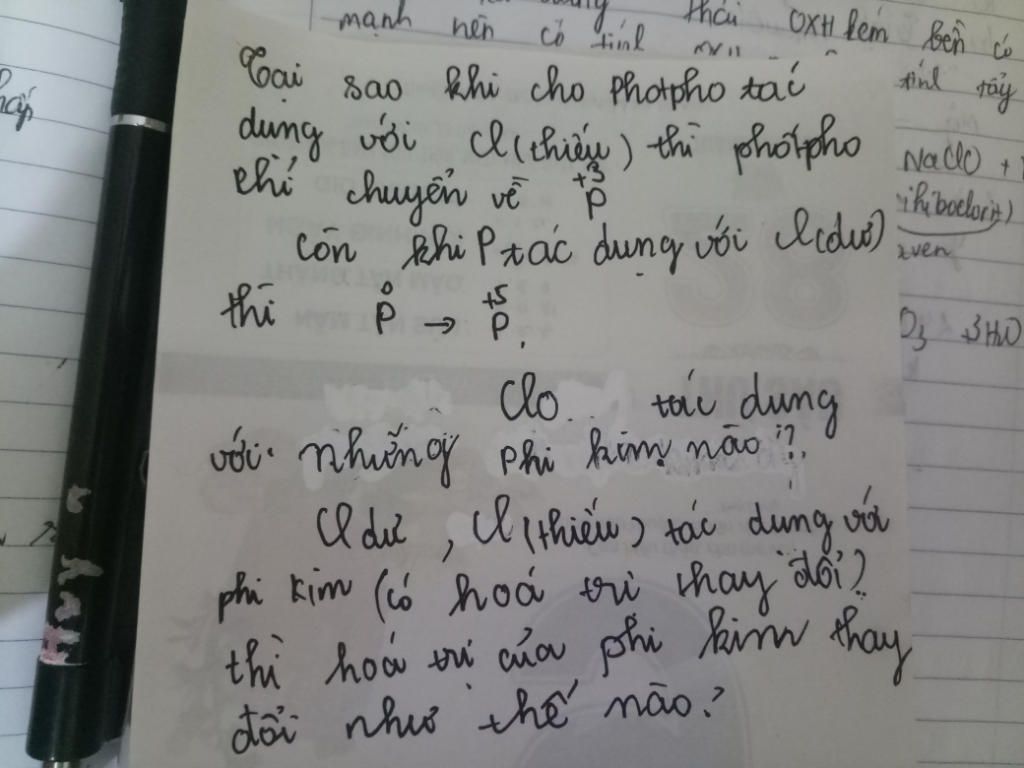 mạnh nên có tính
thái OXH kém bền có
tính tẩy
NaClO +
O3 + 3H2O
Tại sao khi cho photpho tác
dụng với Cl (thiếu) thì photpho
chỉ chuyển về +3 P
Còn khi P tác dụng với Cl (dư)
thì 0 P → +5 P.
Clo tác dung
với những phi kim nào??
Cl dư, Cl (thiếu) tác dung với
phi kim (có hoá trị thay đổi)?
thì hoá trị của phi kim thay
đổi như thế nào?